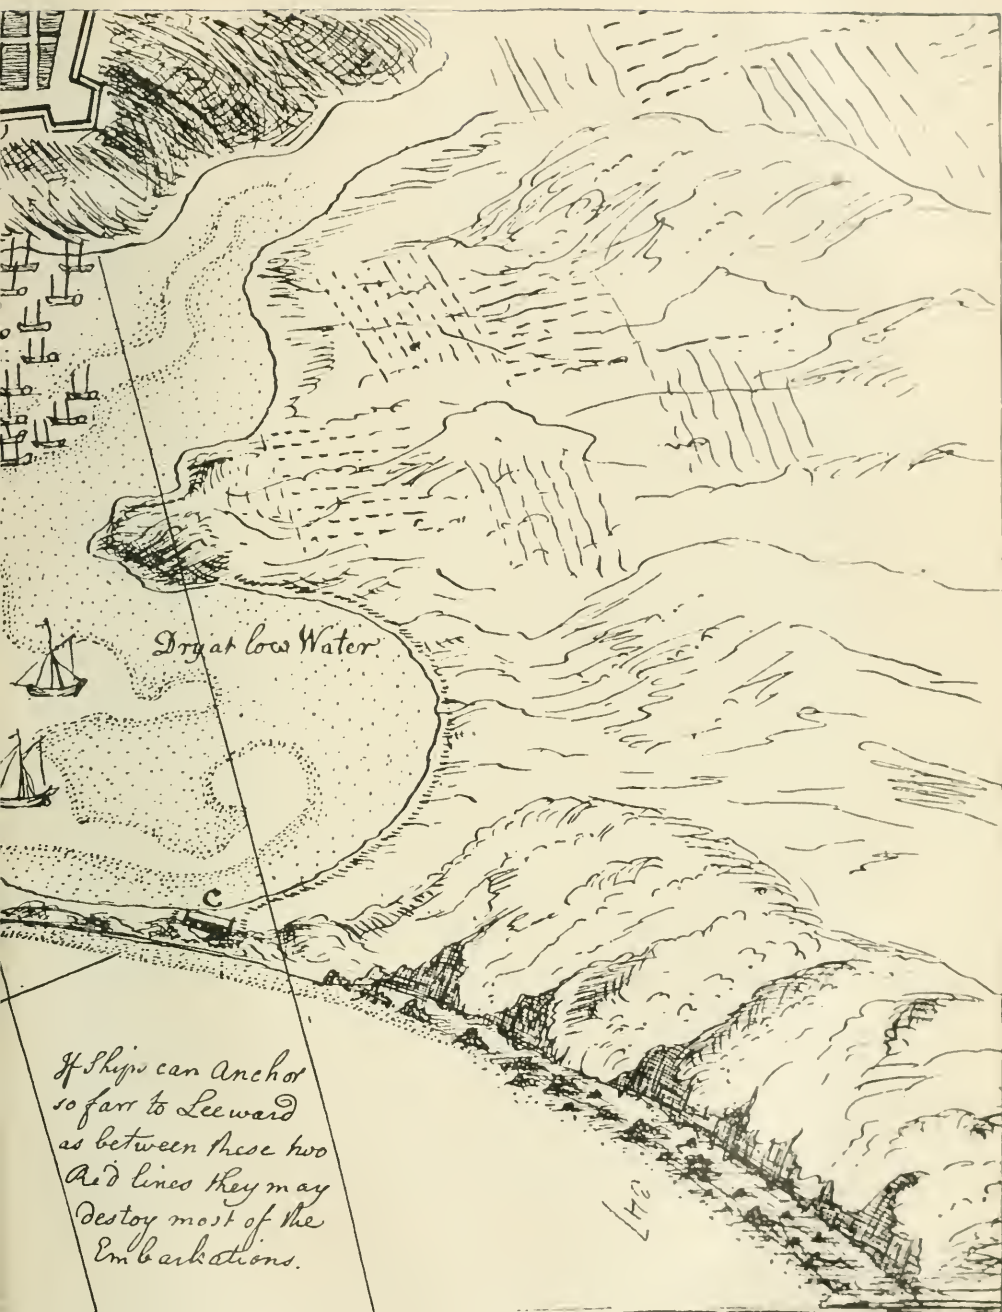 Dry at low Water.
C
If Ships can anchor
so farr to Leeward
as between these two
Red lines they may
destoy most of the
Embarkations.